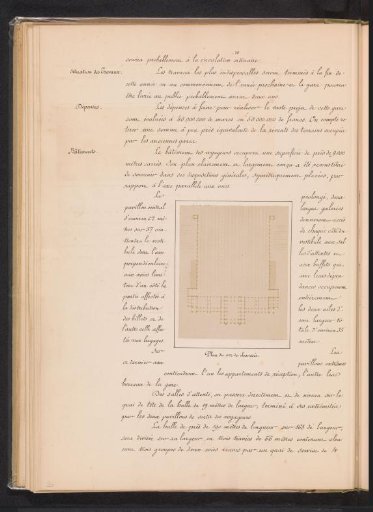 servira probablement à la circulation actuelle.
Situation des Travaux.
Les travaux les plus indispensables seront terminés à la fin de
cette année ou au commencement de l'année prochaine et la gare pourra
être livrée au public probablement dans deux ans.
Dépenses.
Les dépenses à faire pour réaliser le vaste projet de cette gare
sont évaluées à 48.000.000 de marcs ou 60.000.000 de francs. On compte re-
tirer une somme à peu près équivalente de la vente des terrains occupés
par les anciennes gares.
Bâtiments.
Le bâtiment des voyageurs occupera une superficie de près de 9.000
mètres carrés. Son plan clairement et largement conçu a été
de concevoir dans ses dispositions générales, symétriquement placées, par
rapport à l'axe parallèle aux voies.
Le
pavillon central
d'environ 28 mè-
tres sur 37 con-
tiendra le vesti-
bule dans l'axe
perpendiculaire
aux voies
d'un côté la
partie affectée à
la distribution
des billets et de
l'autre celle affec-
tée aux bagages.
Sur
ce dernier
prolongé, deux
longues galeries
donneront accès
de chaque côté du
vestibule aux sal-
les d'attentes et
aux buffets qui
avec leurs dépen-
dances occuperont
entièrement
les deux ailes d'
une largeur to-
tale d'environ 35
mètres.
Les
pavillons extrêmes
Plan du rez de chaussée.
contiendront l'un les appartements de réception, l'autre les
bureaux de la gare.
Des salles d'attente, on passera directement et de niveau sur le
quai de tête de la halle de 19 mètres de largeur, terminé à ses extrémités
par les deux pavillons de sortie des voyageurs.
La halle de près de 190 mètres de longueur sur 168 de largeur,
sera divisée sur sa largeur en trois travées de 56 mètres contenant cha-
cune trois groupes de deux voies séparés par un quai de service de 4